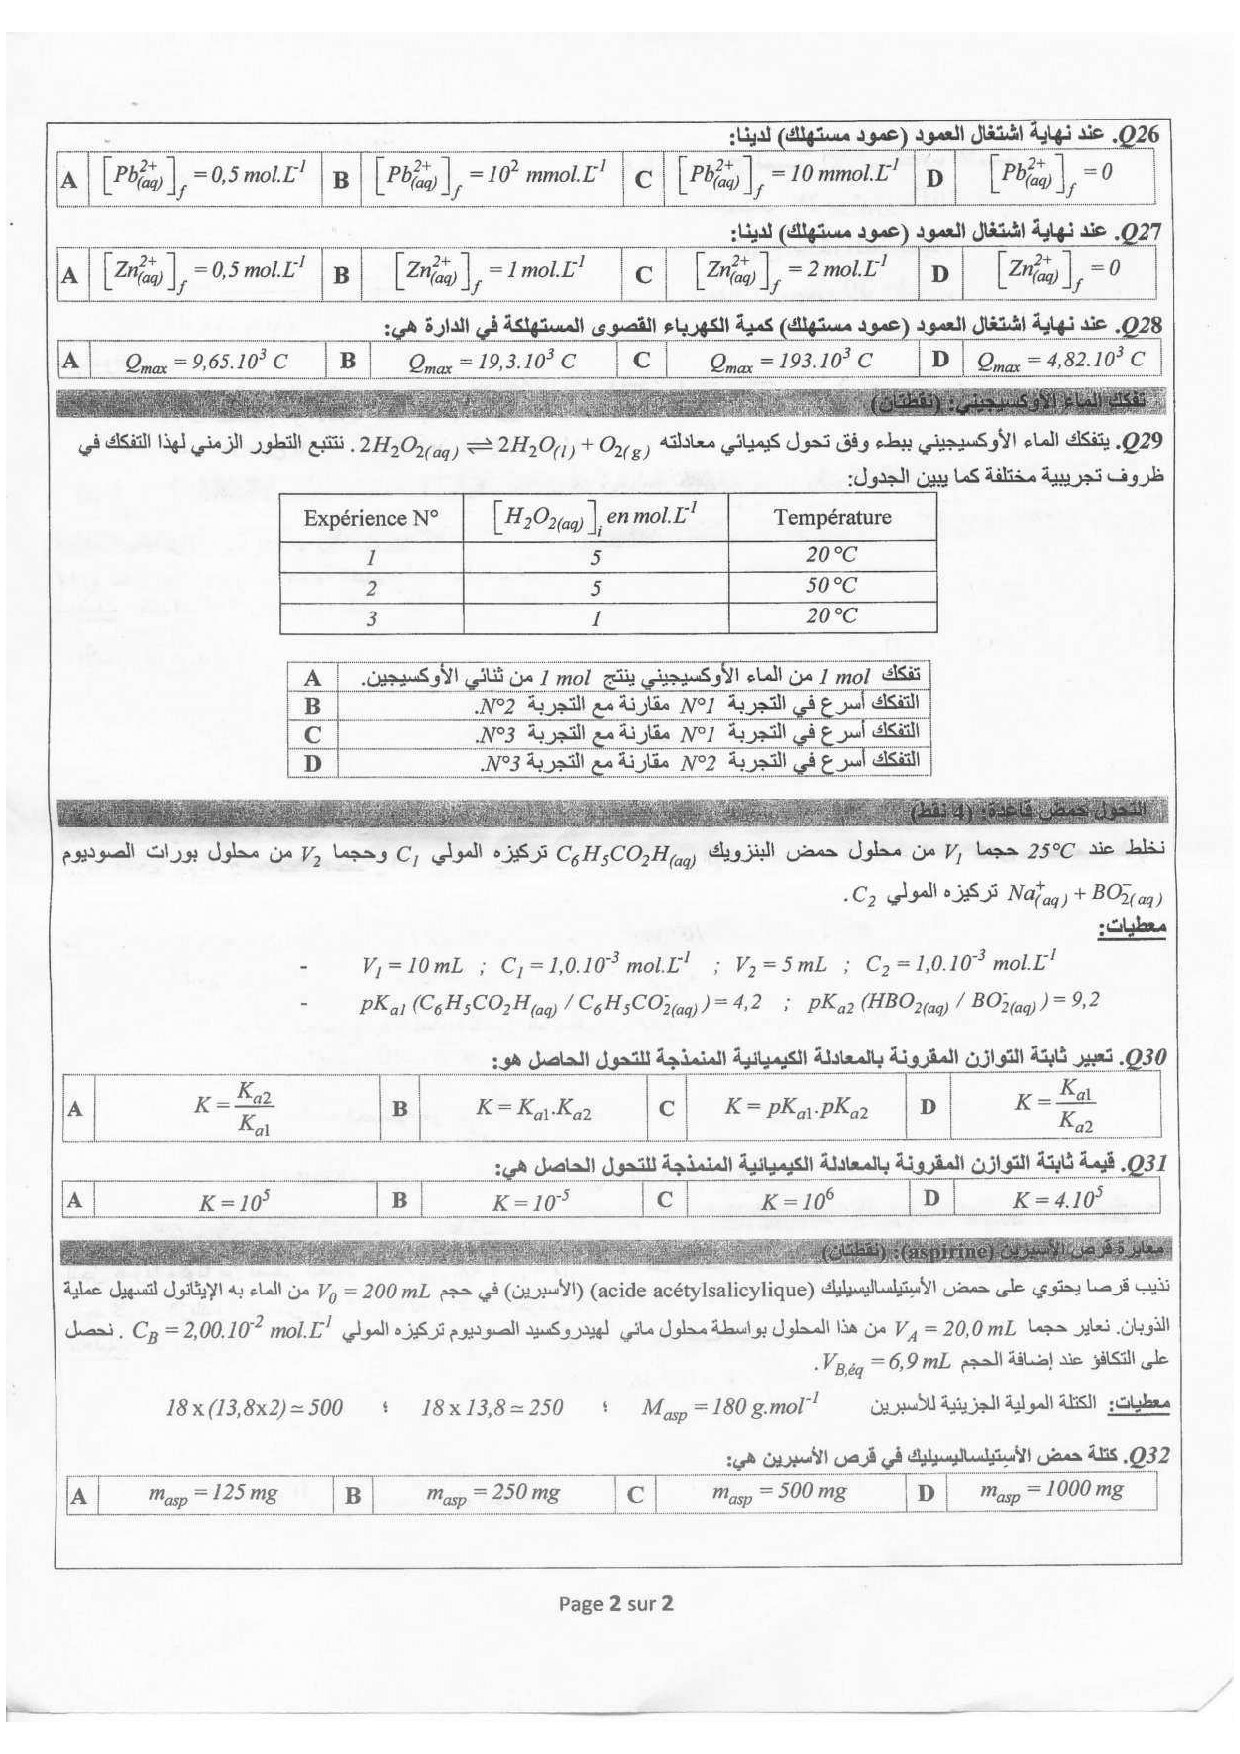 Q26. عند نهاية اشتغال العمود (عمود مستهلك) لدينا:
A [Pb²⁺(aq)]f = 0,5 mol.L⁻¹ B [Pb²⁺(aq)]f = 10² mmol.L⁻¹ C [Pb²⁺(aq)]f = 10 mmol.L⁻¹ D [Pb²⁺(aq)]f = 0
Q27. عند نهاية اشتغال العمود (عمود مستهلك) لدينا:
A [Zn²⁺(aq)]f = 0,5 mol.L⁻¹ B [Zn²⁺(aq)]f = 1 mol.L⁻¹ C [Zn²⁺(aq)]f = 2 mol.L⁻¹ D [Zn²⁺(aq)]f = 0
Q28. عند نهاية اشتغال العمود (عمود مستهلك) كمية الكهرباء القصوى المستهلكة في الدارة هي:
A Qmax = 9,65.10³ C B Qmax = 19,3.10³ C C Qmax = 193.10³ C D Qmax = 4,82.10³ C
تفكك الماء الأوكسيجيني: (نقطتان)
Q29. يتفكك الماء الأوكسيجيني ببطء وفق تحول كيميائي معادلته 2H₂O₂(aq) ⇌ 2H₂O(l) + O₂(g) . نتتبع التطور الزمني لهذا التفكك في
ظروف تجريبية مختلفة كما يبين الجدول:
Expérience N° [H₂O₂(aq)]i en mol.L⁻¹ Température
1 5 20 °C
2 5 50 °C
3 1 20 °C
A تفكك 1 mol من الماء الأوكسيجيني ينتج 1 mol من ثنائي الأوكسيجين.
B التفكك أسرع في التجربة N°1 مقارنة مع التجربة N°2.
C التفكك أسرع في التجربة N°1 مقارنة مع التجربة N°3.
D التفكك أسرع في التجربة N°2 مقارنة مع التجربة N°3.
التحول حمض قاعدة: (4 نقط)
نخلط عند 25°C حجما V₁ من محلول حمض البنزويك C₆H₅CO₂H(aq) تركيزه المولي C₁ وحجما V₂ من محلول بورات الصوديوم
Na⁺(aq) + BO₂⁻(aq) تركيزه المولي C₂ .
معطيات:
- V₁ = 10 mL ; C₁ = 1,0.10⁻³ mol.L⁻¹ ; V₂ = 5 mL ; C₂ = 1,0.10⁻³ mol.L⁻¹
- pKa1 (C₆H₅CO₂H(aq) / C₆H₅CO₂⁻(aq)) = 4,2 ; pKa2 (HBO₂(aq) / BO₂⁻(aq)) = 9,2
Q30. تعبير ثابتة التوازن المقرونة بالمعادلة الكيميائية المنمذجة للتحول الحاصل هو:
A K = Ka2/Ka1 B K = Ka1.Ka2 C K = pKa1.pKa2 D K = Ka1/Ka2
Q31. قيمة ثابتة التوازن المقرونة بالمعادلة الكيميائية المنمذجة للتحول الحاصل هي:
A K = 10⁵ B K = 10⁻⁵ C K = 10⁶ D K = 4.10⁵
معايرة قرص الأسبرين (aspirine): (نقطتان)
نذيب قرصا يحتوي على حمض الأستيلساليسيليك (acide acétylsalicylique) (الأسبرين) في حجم V₀ = 200 mL من الماء به الإيثانول لتسهيل عملية
الذوبان. نعاير حجما VA = 20,0 mL من هذا المحلول بواسطة محلول مائي لهيدروكسيد الصوديوم تركيزه المولي CB = 2,00.10⁻² mol.L⁻¹ . نحصل
على التكافؤ عند إضافة الحجم VB,éq = 6,9 mL .
معطيات: الكتلة المولية الجزيئية للأسبرين Masp = 180 g.mol⁻¹ ؛ 18 x 13,8 ≃ 250 ؛ 18 x (13,8x2) ≃ 500
Q32. كتلة حمض الأستيلساليسيليك في قرص الأسبرين هي:
A masp = 125 mg B masp = 250 mg C masp = 500 mg D masp = 1000 mg
Page 2 sur 2